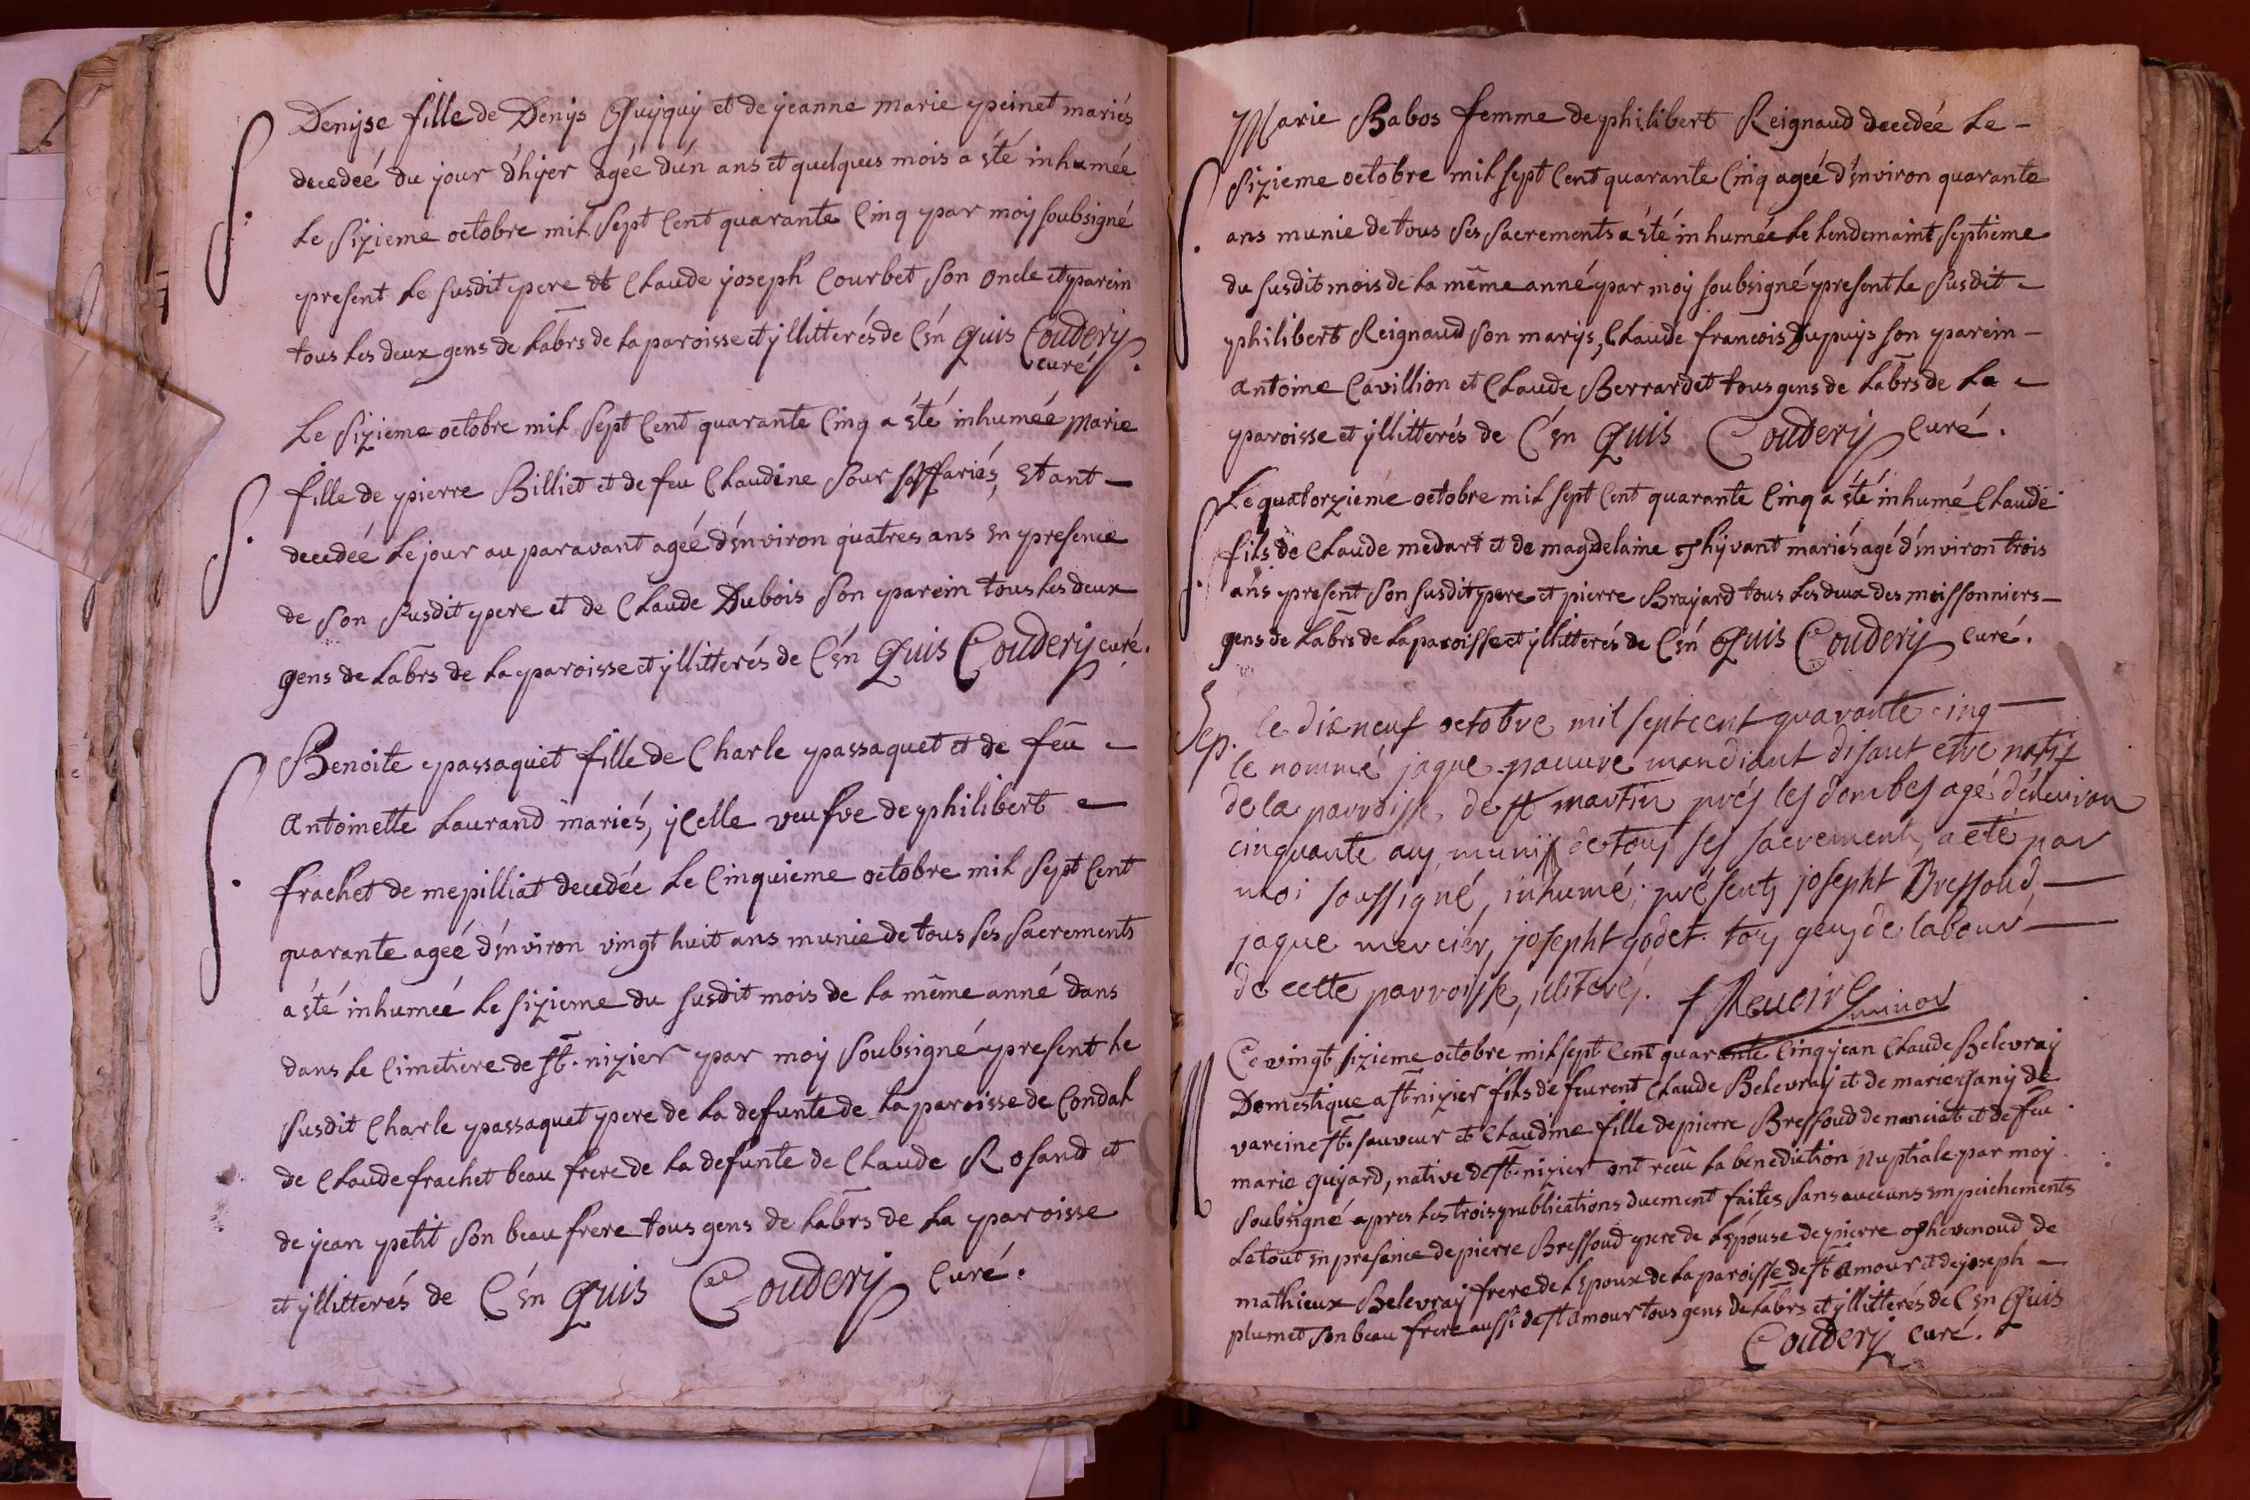 S.
Denyse fille de Denys Quyquy et de jeanne marie peinet mariés
decedeé du jour d'hyer agée d'ún ans et quelques mois a été inhumée
Le sizieme octobre mil sept Cent quarante Cinq par moy soubsigné
present Le susdit pere et Claude joseph Courbet son oncle et parein
tous Les deux gens de Labrs de La paroisse et yllitterés de C'én Quis Coudery
curé.
S.
Le sizieme octobre mil sept Cent quarante Cinq a été inhumeé Marie
fille de pierre Billiet et de feu Claudine Sour mariés, Etant
decedeé Le jour auparavant ageé d'énviron quatres ans en presence
de son susdit pere et de Claude Dubois son parein tous Les deux
gens de Labrs de La paroisse et yllitterés de C'én Quis Coudery curé.
S.
Benoite passaquet fille de Charle passaquet et de feu
Antoinette Laurand mariés, ycelle veufve de philibert
frachet de mepilliat decedée Le Cinquieme octobre mil sept Cent
quarante ageé d'énviron vingt huit ans munie de tous ses sacrements
a été inhumeé Le sizieme du susdit mois de La même anné dans
dans Le Cimetiere de st. nizier par moy soubsigné present Le
susdit Charle passaquet pere de La defunte de La paroisse de Condal
de Claude frachet beau frere de La defunte de Claude Rosand et
de jean petit son beau frere tous gens de Labrs de La paroisse
et yllitterés de C'én Quis Coudery Curé.
S.
Marie Babos femme de philibert Reignaud decedée Le
sizieme octobre mil sept Cent quarante Cinq ageé d'énviron quarante
ans munie de tous ses sacrements a été inhumée Le Lendemaint septieme
du susdit mois de La même anné par moy soubsigné present Le susdit
philibert Reignaud son marys, Claude francois Dupuys son parein
Antoine Cavillion et Claude Berrardet tous gens de Labrs de La
paroisse et yllitterés de C'én Quis Coudery Curé.
S.
Le quatorzieme octobre mil sept Cent quarante Cinq a été inhumé Claude
fils de Claude medart et de magdelaine mariés agé d'énviron trois
ans present son susdit pere et pierre Brayard tous Les deux des moissonniers
gens de Labrs de La paroisse et yllitterés de C'én Quis Coudery curé.
Sep.
le dixneuf octobre mil sept cent quarante cinq
le nommé jaque pauvre mandiant disant etre natif
de la parroisse de st martin prés les dombes agé d'énviron
cinquante ans, munis de tous ses sacrements, a eté par
moi soussigné, inhumé; présents josepht Bressoud,
jaque mercier, josepht godet. tous gens de labour
de cette parroisse, illiterés. f Reveire minor
M
Ce vingt sizieme octobre mil sept Cent quarante Cinq jean Claude Belevray
Domestique a st nizier fils de feu rent Claude Belevray et de marie jany de
vareine st. sauveur et Claudine fille de pierre Bressoud de nanciat et de feu
marie guyard, native de st. nizier ont receu La benediction Nuptiale par moy
soubsigné apres Les trois publications duement faites sans aucuns empeichements
Le tout en presence de pierre Bressoud pere de L'épouse de pierre de
mathieux Belevray frere de L'Epoux de La paroisse de st amour et de joseph
plumet son beau frere aussi de st amour tous gens de Labrs et yllitterés de C'en Quis
Coudery curé.